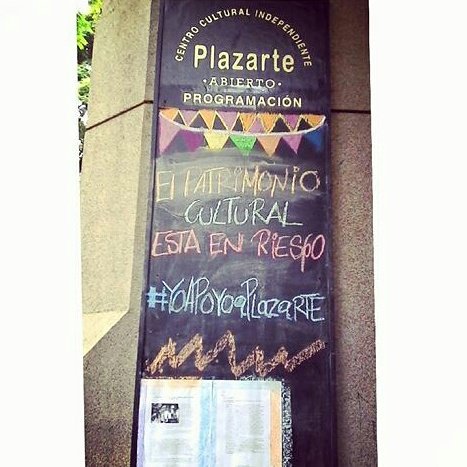 CENTRO CULTURAL INDEPENDIENTE
Plazarte
·ABIERTO·
PROGRAMACIÓN
El PATRIMONIO
CULTURAL
ESTA EN RIESGO
#YOAPOYOaPlazaRTE